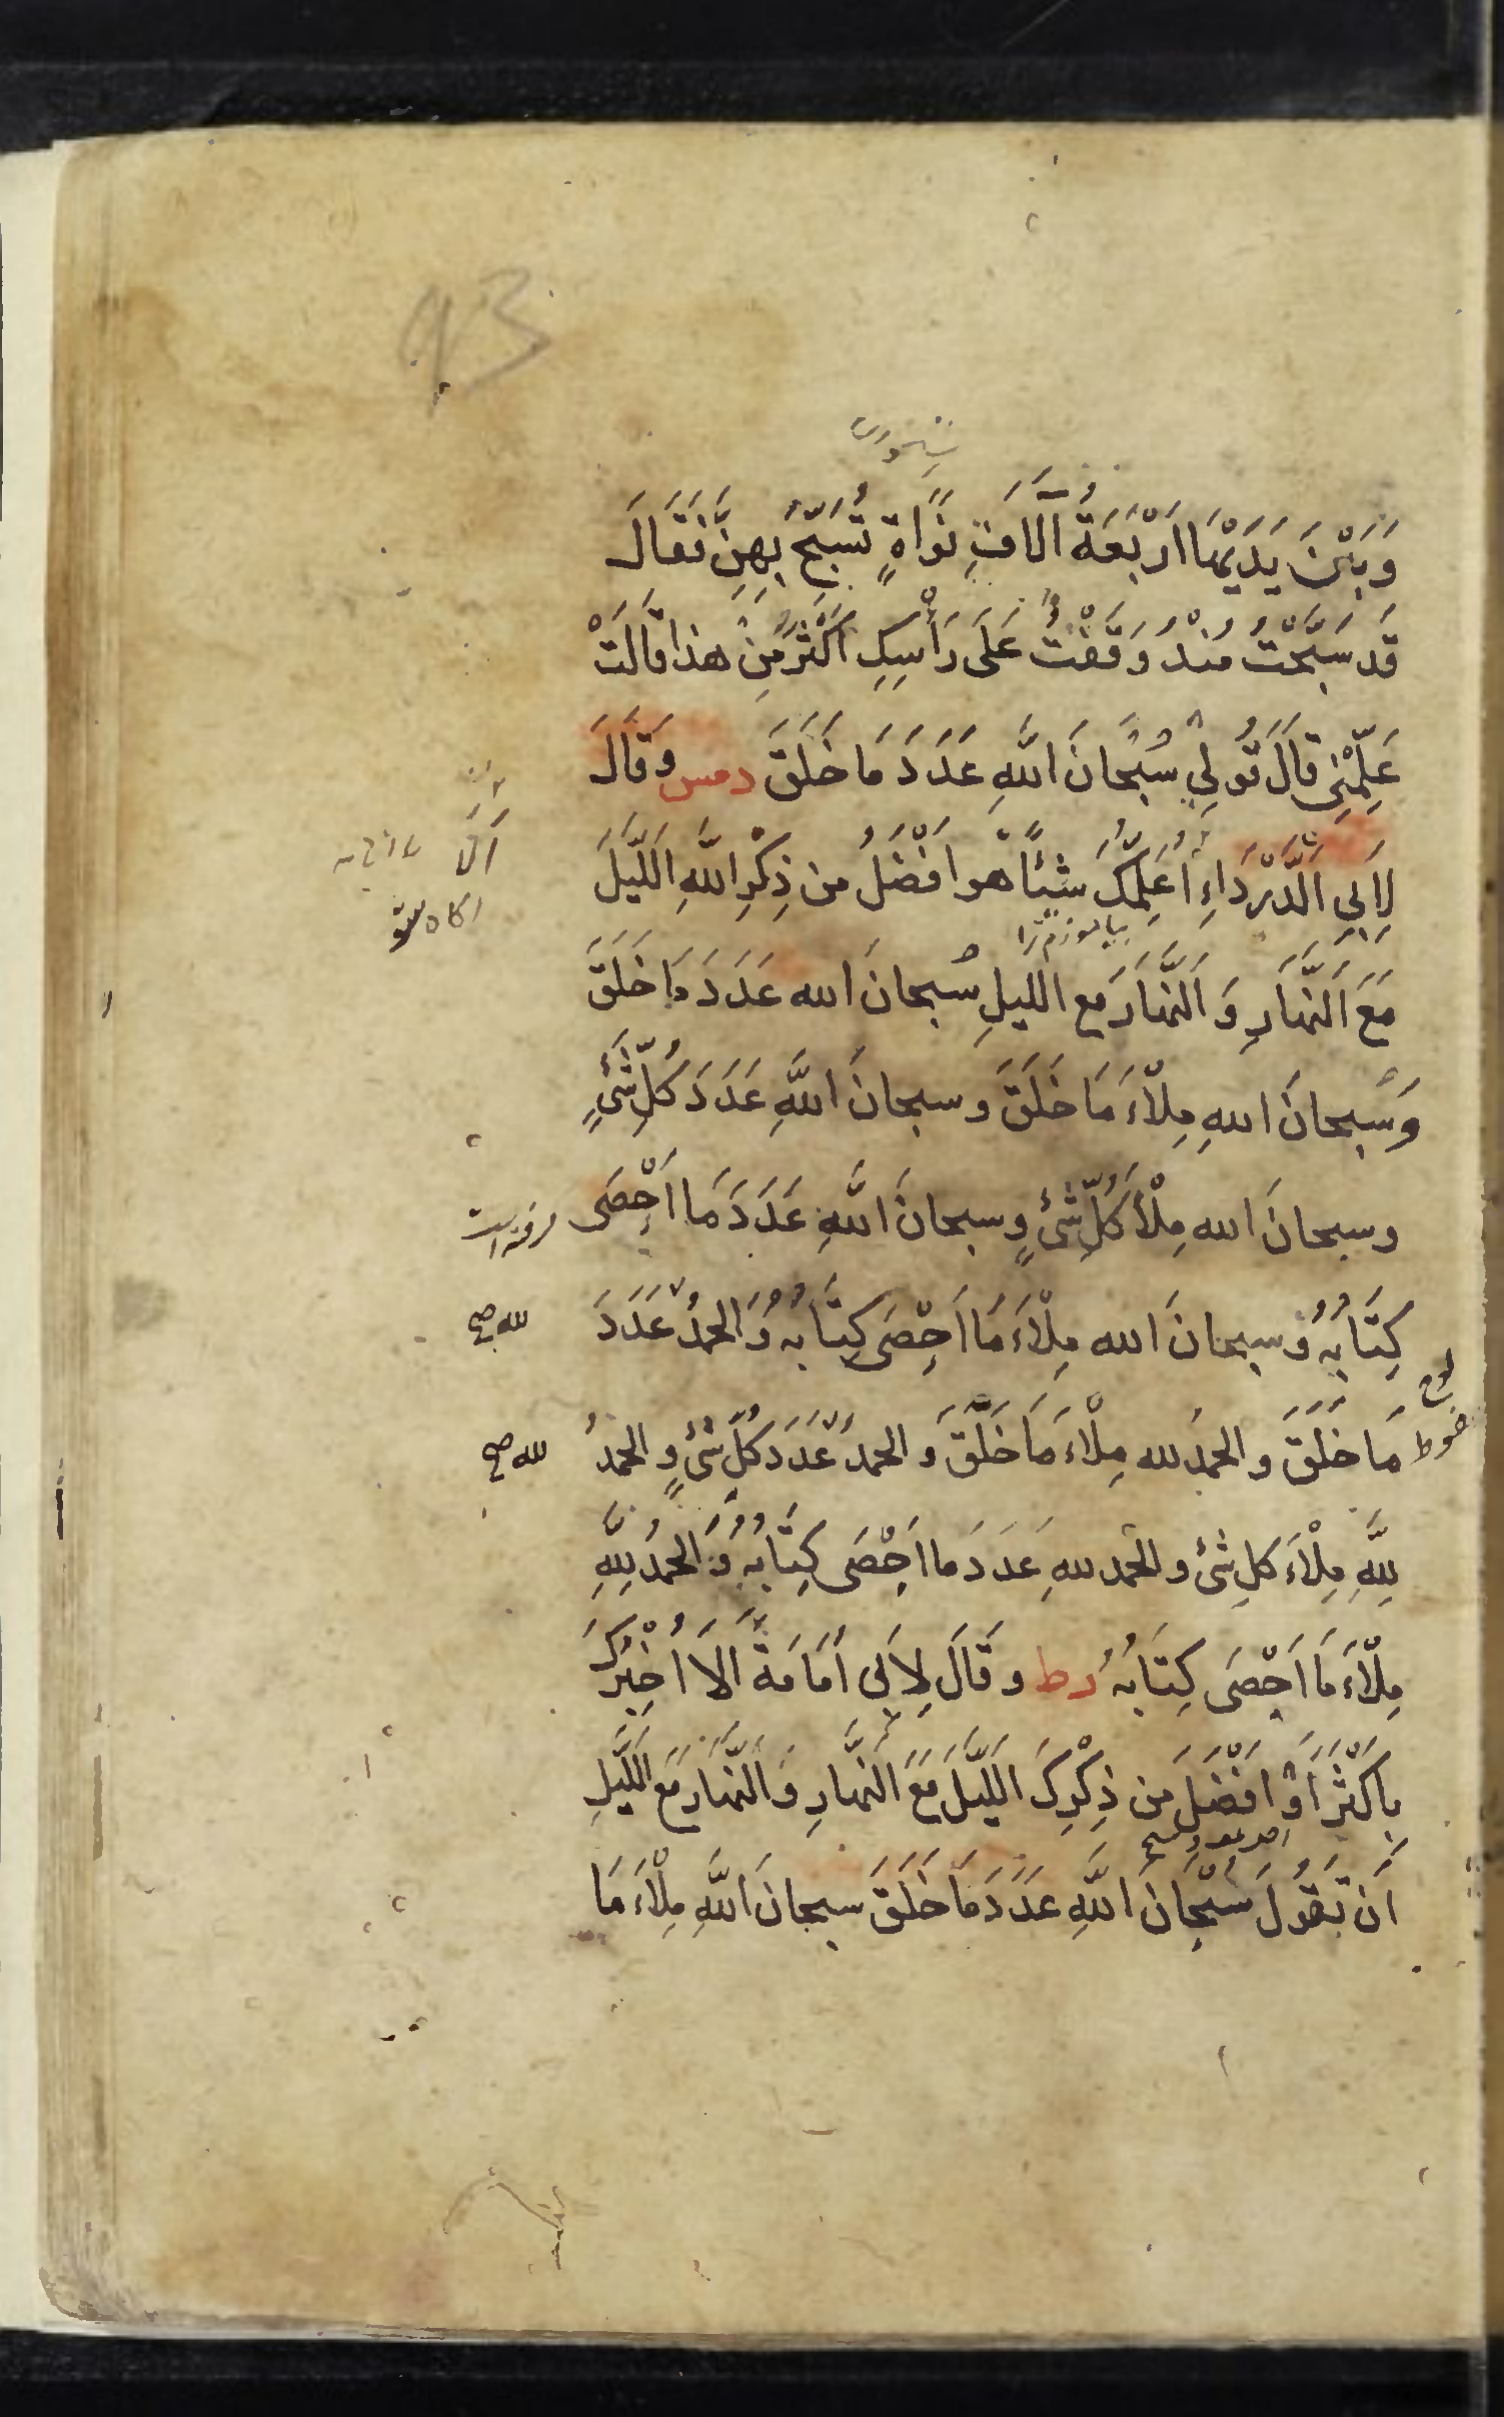 وَبَيْنَ يَدَيْهَا اَرْبَعَةُ آلَافِ نَوَاةٍ تُسَبِّحُ بِهِنَّ فَقَالَ
قَد سَبَّحْتُ مُنْذُ وَقَفْتُ عَلَى رَأْسِكِ اَكْثَرَ مِنْ هذا قَالَتْ
عَلِّمْنِى قَالَ قُولِى سُبْحَانَ اللَّهِ عَدَدَ مَا خَلَقَ دمس وَقَالَ
لِاَبِى الدَّرْدَاءِ اُعَلِّمُكَ شَيْئًا هو اَفْضَلُ من ذِكْرِ اللَّهِ اللَّيْلَ
بیاموزم ترا
مَعَ النَّهَارِ وَ النَّهَارَ مع الليلِ سُبحانَ الله عَدَدَ مَا خَلَقَ
وَسُبحانَ اللهِ مِلْاءَ مَا خَلَقَ وسبحانَ اللَّهِ عَدَدَ كُلِّ شَىْءٍ
وسبحانَ الله مِلْأَ كُلِّ شَىْءٍ وسبحانَ اللَّهِ عَدَدَ مَا اَحْصَى
كِتَابُهُ وَسبحانَ الله مِلْاءَ مَا اَحْصَى كِتَابُهُ وَ الحمدُ عَدَدَ
لله صح
مَا خَلَقَ و الحمدُ لله مِلْاءَ مَا خَلَقَ وَ الحمدُ عَدَدَ كُلِّ شىْءٍ و الحمدُ
لله صح
لِلَّهِ مِلْاءَ كلِ شىْء و الحمد للهِ عَدَدَ ما اَحْصَى كِتَابُهُ وَ الحمدُ لِلَّهِ
مِلْاءَ مَا اَحْصَى كِتَابُهُ رط و قَالَ لِاَبِى اُمَامَةَ اَلَا اُخْبِرُكَ
بِاَكْثَرَ اَوْ اَفْضَلَ مِن ذِكْرِكَ اللَّيْلَ مَعَ النَّهَارِ وَ النَّهَارَ مَعَ اللَّيْلِ
اَن تَقُولَ سُبْحَانَ اللَّهِ عَدَدَ مَا خَلَقَ سبحانَ اللَّهِ مِلْاءَ مَا